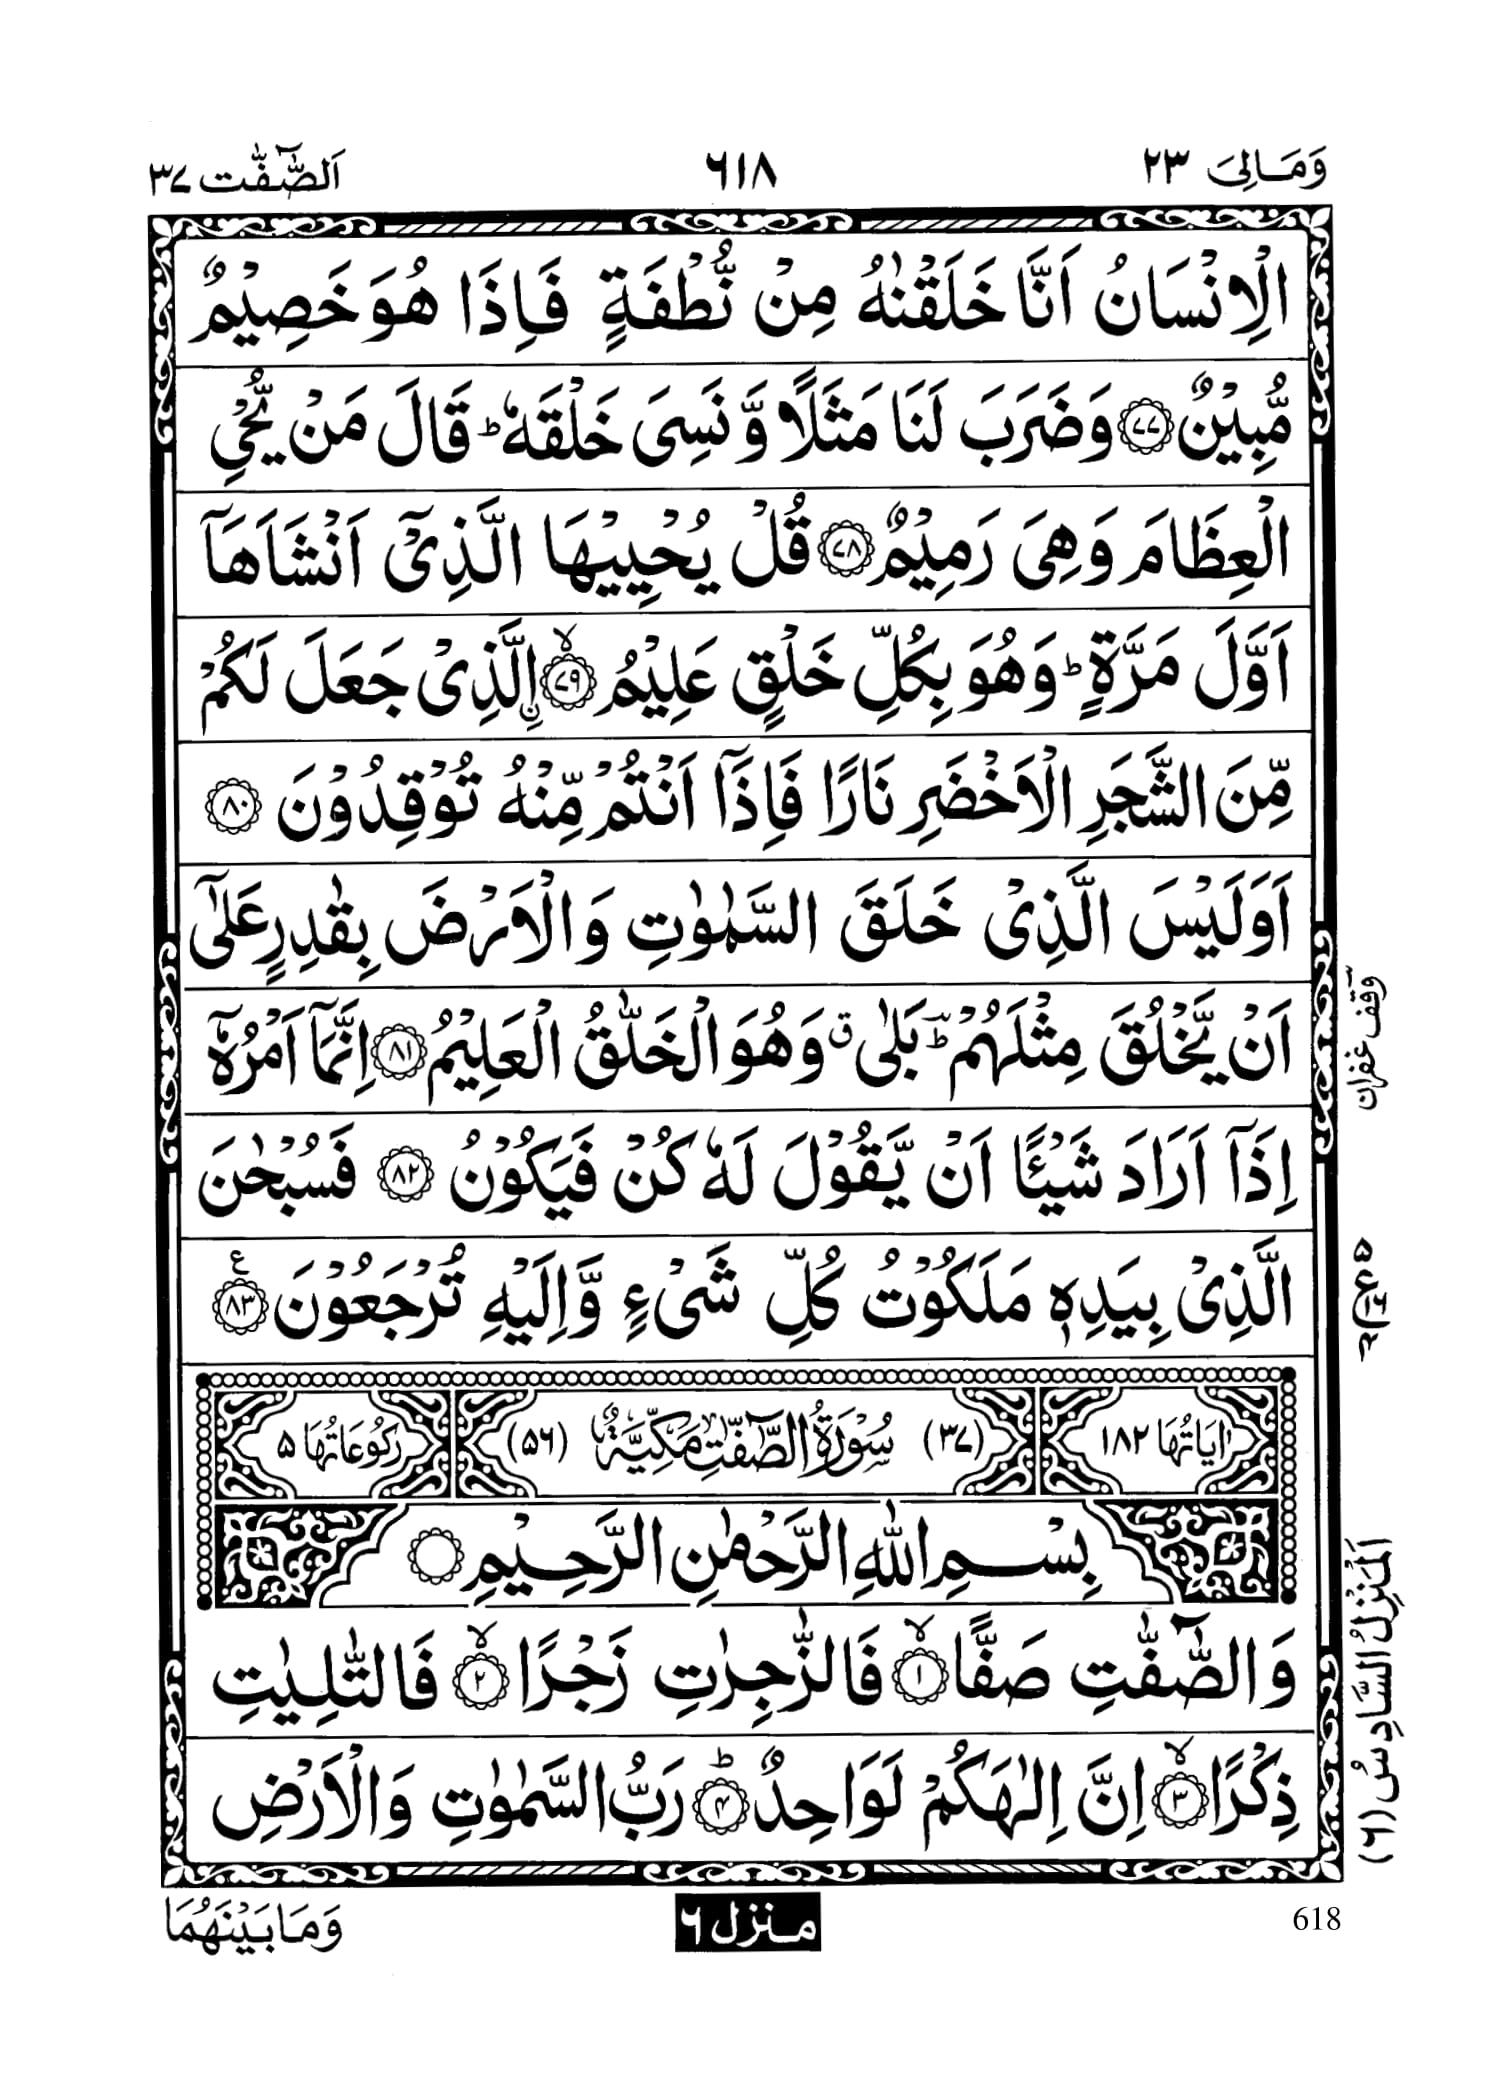 وَمَالِیَ ۲۳
۶۱۸
اَلصّٰٓفّٰت ۳۷
الْاِنْسَانُ اَنَّا خَلَقْنٰهُ مِنْ نُّطْفَةٍ فَاِذَا هُوَ خَصِیْمٌ
مُّبِیْنٌ ﴿۷۷﴾ وَضَرَبَ لَنَا مَثَلًا وَّنَسِیَ خَلْقَهٗ ؕ قَالَ مَنْ یُّحْیِ
الْعِظَامَ وَهِیَ رَمِیْمٌ ﴿۷۸﴾ قُلْ یُحْیِیْهَا الَّذِیْۤ اَنْشَاَهَاۤ
اَوَّلَ مَرَّةٍ ؕ وَهُوَ بِكُلِّ خَلْقٍ عَلِیْمُ ﴿۷۹﴾ۙ ۨالَّذِیْ جَعَلَ لَكُمْ
مِّنَ الشَّجَرِ الْاَخْضَرِ نَارًا فَاِذَاۤ اَنْتُمْ مِّنْهُ تُوْقِدُوْنَ ﴿۸۰﴾
اَوَلَیْسَ الَّذِیْ خَلَقَ السَّمٰوٰتِ وَالْاَرْضَ بِقٰدِرٍ عَلٰۤی
اَنْ یَّخْلُقَ مِثْلَهُمْ ؔؕ بَلٰی ۗ وَهُوَ الْخَلّٰقُ الْعَلِیْمُ ﴿۸۱﴾ اِنَّمَاۤ اَمْرُهٗۤ
اِذَاۤ اَرَادَ شَیْـًٔا اَنْ یَّقُوْلَ لَهٗ كُنْ فَیَكُوْنُ ﴿۸۲﴾ فَسُبْحٰنَ
الَّذِیْ بِیَدِهٖ مَلَكُوْتُ كُلِّ شَیْءٍ وَّاِلَیْهِ تُرْجَعُوْنَ ﴿۸۳﴾ ع
اٰیَاتُهَا ۱۸۲ (۳۷) سُوْرَةُ الصّٰٓفّٰتِ مَكِّیَّةٌ (۵۶) رُكُوْعَاتُهَا ۵
بِسْمِ اللهِ الرَّحْمٰنِ الرَّحِیْمِ
وَالصّٰٓفّٰتِ صَفًّا ﴿۱﴾ۙ فَالزّٰجِرٰتِ زَجْرًا ﴿۲﴾ۙ فَالتّٰلِیٰتِ
ذِكْرًا ﴿۳﴾ۙ اِنَّ اِلٰهَكُمْ لَوَاحِدٌ ﴿۴﴾ؕ رَبُّ السَّمٰوٰتِ وَالْاَرْضِ
وقف غفران
اَلْمَنْزِلُ السَّادِسُ (۶)
وَمَا بَیْنَهُمَا
منزل ۶
618